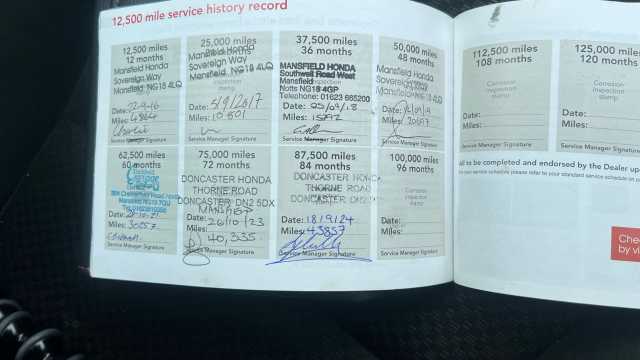 12,500 mile service history record
12,500 miles
12 months
Mansfield Honda
Sovereign Way
Mansfield NG18 4LQ
Date:
Miles:
Service Manager Signature
25,000 miles
Mansfield Honda
Sovereign Way
Mansfield NG18 4LQ
Date: 5/9/2017
Miles: 10 801
Service Manager Signature
37,500 miles
36 months
MANSFIELD HONDA
Southwell Road West
Mansfield
Notts NG18 4GP
Telephone: 01623 665200
Date: 05/09/18
Miles:
Service Manager Signature
50,000 miles
48 months
Mansfield Honda
Sovereign Way
Mansfield NG18 4LQ
Date:
Miles:
Service Manager Signature
62,500 miles
60 months
Date:
Miles: 30257
Service Manager Signature
75,000 miles
72 months
DONCASTER HONDA
THORNE ROAD
DONCASTER DN2 5DX
Date: 26/10/23
Miles: 40,335
Service Manager Signature
87,500 miles
84 months
DONCASTER HONDA
THORNE ROAD
DONCASTER DN2
Date: 18/9/24
Miles: 43857
Service Manager Signature
100,000 miles
96 months
Corrosion
inspection
stamp
Date:
Miles:
Service Manager Signature
112,500 miles
108 months
Corrosion
inspection
stamp
125,000 mile
120 months
Corrosion
inspection
stamp
all to be completed and endorsed by the Dealer up
service schedule please refer to your standard service schedule
Che
by vi